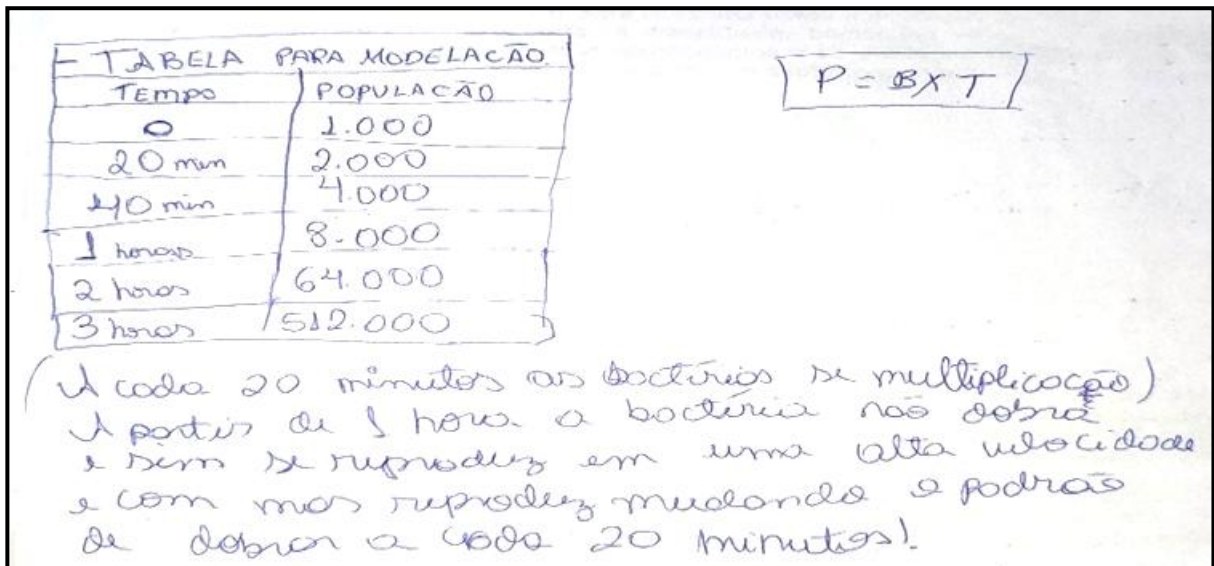 TABELA PARA MODELACÃO
TEMPO POPULACÃO
0 1.000
20 min 2.000
40 min 4.000
1 horas 8.000
2 horas 64.000
3 horas 512.000
P = BX T
(A cada 20 minutos as bactérias se multiplicação)
A partir de 1 hora a bactéria não dobra
e sim se reproduz em uma alta velocidade
e com mas reproduz mudando o padrão
de dobrar a cada 20 minutos!